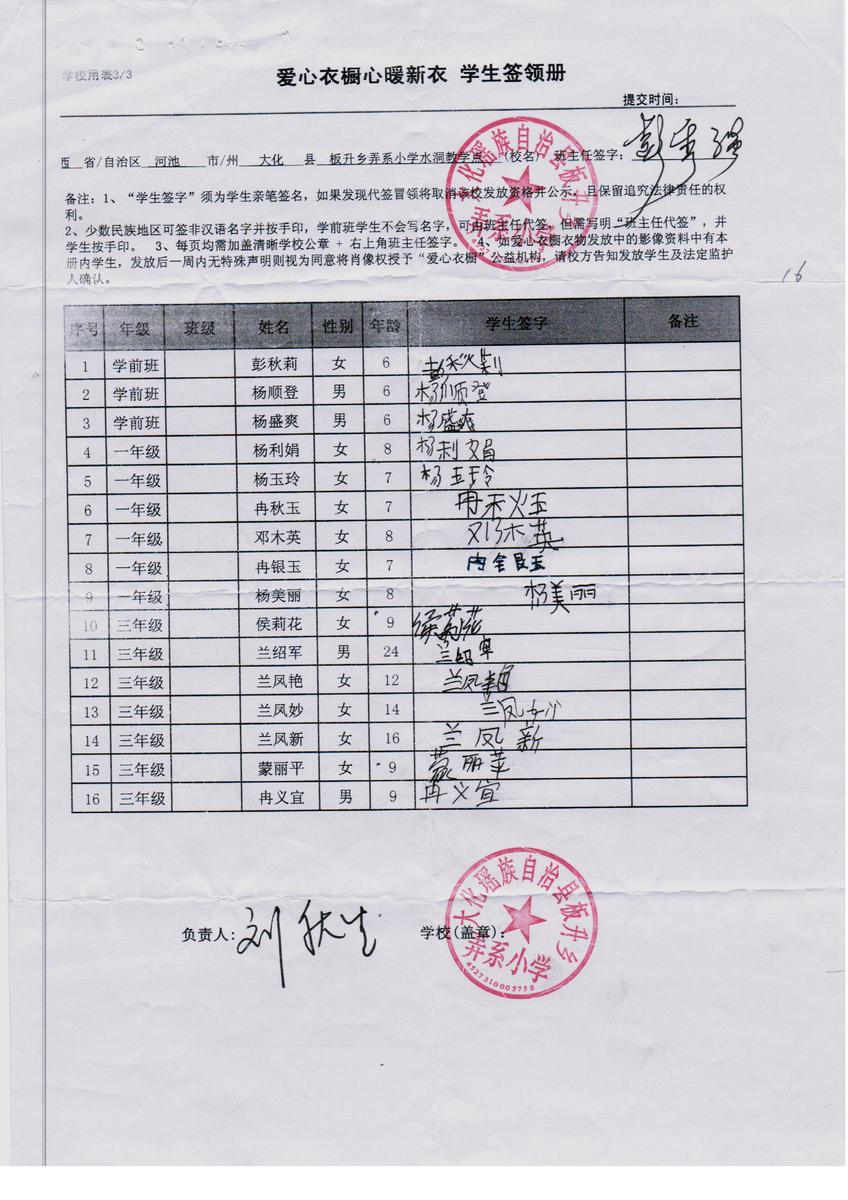 学校用表3/3
爱心衣橱心暖新衣 学生签领册
提交时间：
西 省/自治区 河池 市/州 大化 县 板升乡弄系小学水洞教学点 (校名) 班主任签字：
备注：1、“学生签字”须为学生亲笔签名，如果发现代签冒领将取消该校发放资格并公示，且保留追究法律责任的权
利。
2、少数民族地区可签非汉语名字并按手印，学前班学生不会写名字，可由班主任代签，但需写明“班主任代签”，并
学生按手印。 3、每页均需加盖清晰学校公章 + 右上角班主任签字。 4、如爱心衣橱衣物发放中的影像资料中有本
册内学生，发放后一周内无特殊声明则视为同意将肖像权授予“爱心衣橱”公益机构，请校方告知发放学生及法定监护
人确认。
大化瑶族自治县板升乡
弄系小学
16
序号 年级 班级 姓名 性别 年龄 学生签字 备注
1 学前班 彭秋莉 女 6 彭秋莉
2 学前班 杨顺登 男 6 杨顺登
3 学前班 杨盛爽 男 6 杨盛爽
4 一年级 杨利娟 女 8 杨利娟
5 一年级 杨玉玲 女 7 杨玉玲
6 一年级 冉秋玉 女 7 冉秋玉
7 一年级 邓木英 女 8 邓木英
8 一年级 冉银玉 女 7 冉银玉
9 一年级 杨美丽 女 8 杨美丽
10 三年级 侯莉花 女 9 侯莉花
11 三年级 兰绍军 男 24 兰绍军
12 三年级 兰凤艳 女 12 兰凤艳
13 三年级 兰凤妙 女 14 兰凤妙
14 三年级 兰凤新 女 16 兰凤新
15 三年级 蒙丽平 女 9 蒙丽苹
16 三年级 冉义宜 男 9 冉义宜
负责人: 刘 学校(盖章):
大化瑶族自治县板升乡
弄系小学
4527310005758